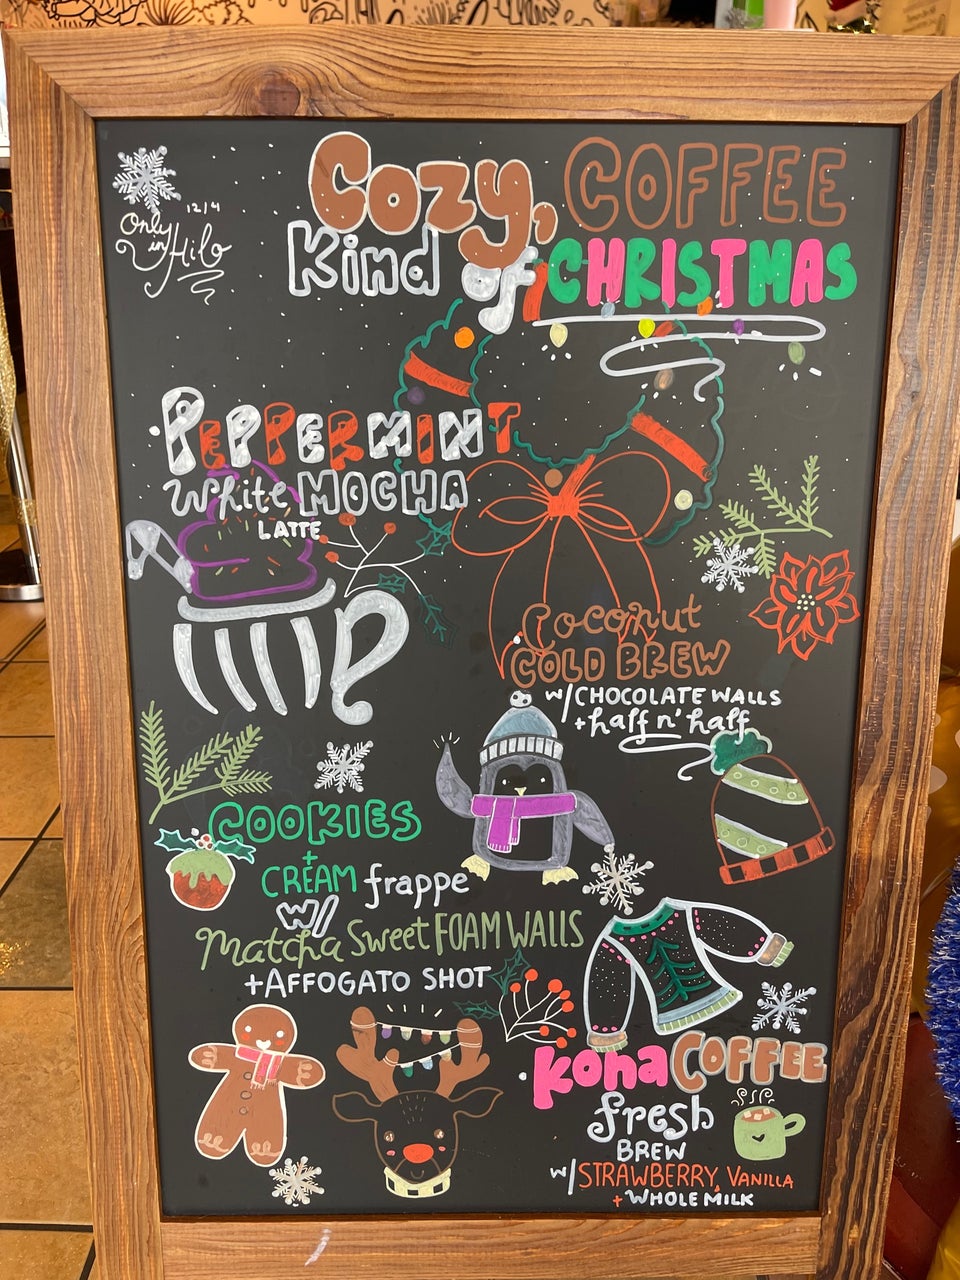 12/4
Only
in Hilo
Cozy, COFFEE
Kind of CHRISTMAS
PEPPERMINT
White MOCHA
LATTE
Coconut
COLD BREW
W/CHOCOLATE WALLS
+half n' half
COOKIES
+
CREAM frappe
W/
Matcha Sweet FOAM WALLS
+AFFOGATO SHOT
Kona COFFEE
fresh
BREW
W/STRAWBERRY, VANILLA
+ WHOLE MILK